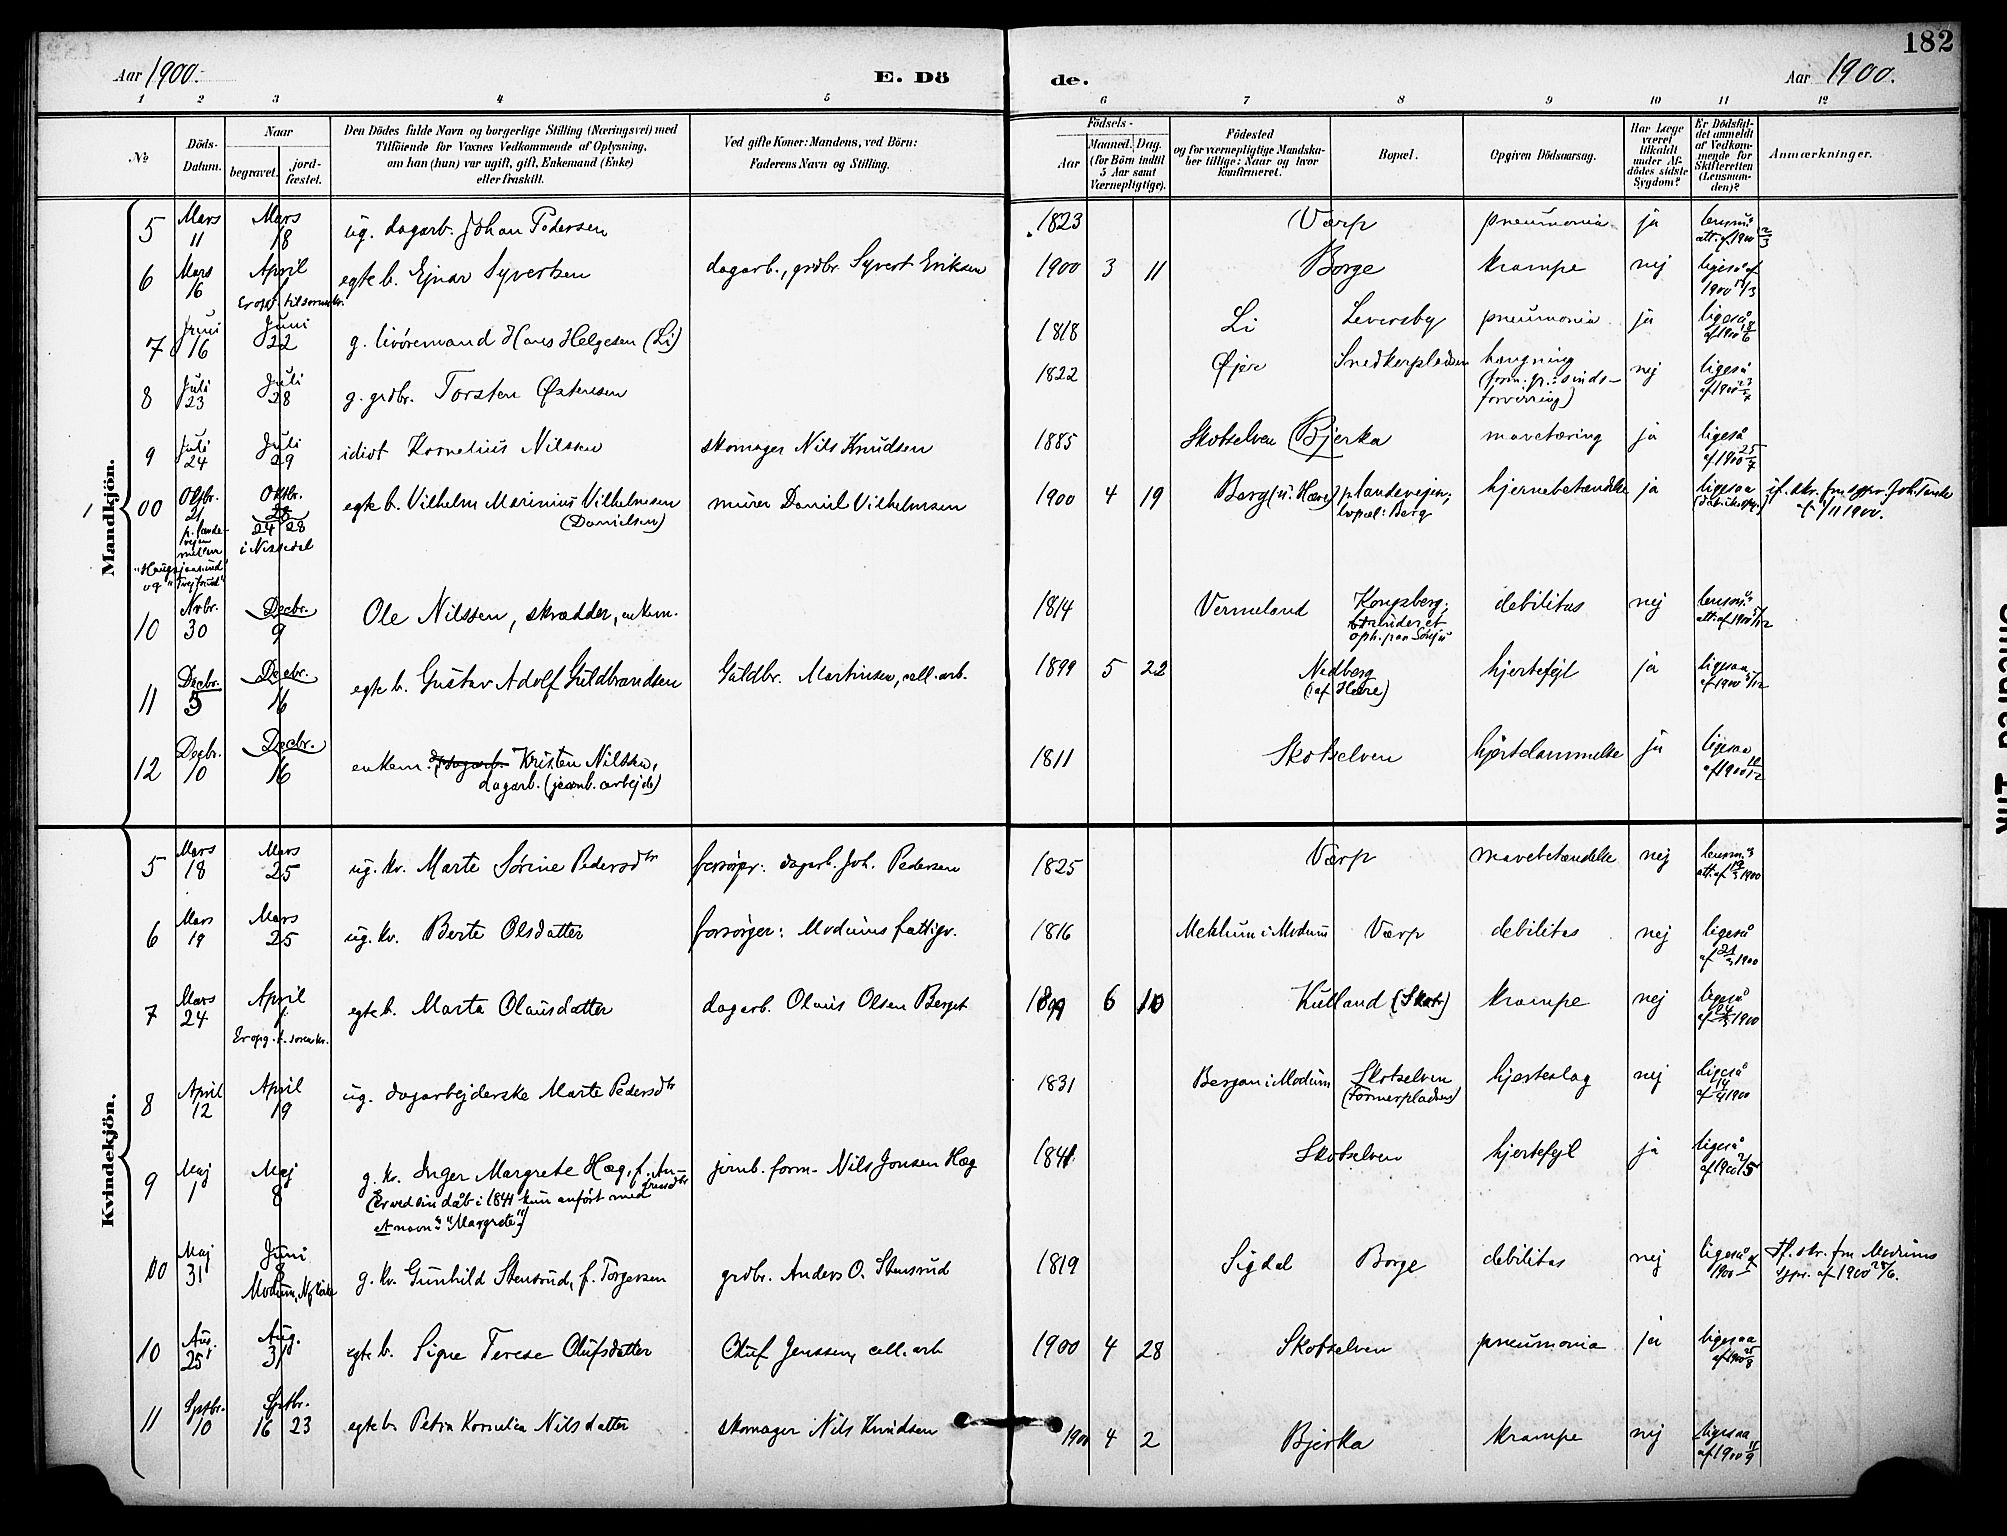 182
Aar 1900.
E. Dö
de.
Aar 1900.
1 2 3 4 5 6 7 8 9 10 11 12
№
Döds-Datum.
Naar
begravet.
jordfæstet.
Den Dödes fulde Navn og borgerlige Stilling (Næringsvei) med
Tilföiende for Voxnes Vedkommende af Oplysning,
om han (hun) var ugift, gift, Enkemand (Enke)
eller fraskilt.
Ved gifte Koner: Mandens, ved Börn:
Faderens Navn og Stilling.
Födsels-
Aar
Maaned. Dag.
(for Börn indtil
5 Aar samt
Værnepligtige).
Födested
og for værnepligtige Mandskaber tillige: Naar og hvor
konfirmeret.
Bopæl.
Opgiven Dödsaarsag.
Har Læge
været
tilkaldt
under Afdödes sidste
Sygdom?
Er Dödsfaldet anmeldt
af Vedkommende for
Skifteretten
(Lensmanden)?
Anmærkninger.
Mandkjön.
5 Mars 11 Mars 18 ug. dagarb. Johan Pedersen 1823 Værp pneumonia ja lensm.s att. af 1900 12/3
6 Mars 16 April 1 egte b. Ejnar Syvertsen dagarb., grdbr. Syvert Eriksen 1900 3 11 Borge krampe nej ligeså af 1900 17/3
7 Juni 16 Juni 22 g. livöremand Hans Helgesen (Li) 1818 Li Leversby pneumonia ja ligeså af 1900 18/6
8 Juli 23 Juli 28 g. grdbr. Torsten Østensen 1822 Øjer Snedkerpladsen hængning (form. gr.: sindsforvirring) nej ligeså af 1900 23/7
9 Juli 24 Juli 29 idiot Kornelius Nilssen skomager Nils Knudsen 1885 Skotselven (Bjerka mavetæring ja ligeså af 1900 25/7
00 Oktbr. 21 p. landevejen mellem "Haugsjaasund" og "Tvejtsund" Oktbr. 24 28 i Nissedal egte b. Vilhelm Marinius Vilhelmsen (Danielsen) murer Daniel Vilhelmsen 1900 4 19 Berg (u. Hære) p landevejen; bopæl: Berg hjernebetændelse ja ligesaa if. skr. fra sgpr. Joh. Tande af 1/11 1900.
10 Nvbr. 30 Decbr. 9 Ole Nilssen, skrædder, enkem. 1814 Vermeland Kongsberg; oph. paa debilitas nej lensm.s att. af 1900 5/12
11 Decbr. 5 Decbr. 16 egte b. Gustav Adolf Guldbrandsen Guldbr. Martinsen, cell. arb. 1899 5 22 Nedberg (af Hære) hjertefejl ja ligesaa af 1900 5/12
12 Decbr. 10 Decbr. 16 enkem. dagarb. Kristen Nilssen, dagarb. (jernb. arbejde) 1811 Skotselven hjertelammelse ja ligesaa af 1900 10/12
Kvindekjön.
5 Mars 18 Mars 25 ug. kv. Marte Sørine Pedersdtr forsörgr: dagarb. Joh. Pedersen 1825 Værp mavebetændelse nej lensm.s att. af 19/3 1900
6 Mars 19 Mars 25 ug. kv. Berte Olsdatter forsörger: Modums fattigv. 1816 Mehlum i Modum Værp debilitas nej ligeså af 21/3 1900
7 Mars 24 April 1 egte b. Marta Olausdatter dagarb. Olaus Olsen Berget 1899 6 10 Kulland (Skot.) krampe nej ligeså af 24/3 1900
8 April 12 April 19 ug. dagarbejderske Marte Pedersdtr 1831 Bergan i Modum Skotselven (Tømmerpladsen) hjerteslag nej ligeså af 14/4 1900
9 Maj 1 Maj 8 g. kv. Inger Margrete Hæg, f. Andresdtr (Er ved sin dåb i 1841 kun anført med et navn: "Margrete") jernb. form. Nils Jonsen Hæg 1841 Skotselven hjertefejl ja ligeså af 1900 2/5
00 Maj 31 Juni 8 Modum, g. kv. Gunhild Stensrud, f. Torgersen grdbr. Anders O. Stensrud 1819 Sigdal Borge debilitas nej ligeså af 1900 If. skr. fra Modums sgpr. af 1900 28/6.
10 Aug. 25 Aug. 31 egte b. Signe Terese Olufsdatter Oluf Jenssen, cell. arb. 1900 4 28 Skotselven pneumonia ja ligesaa af 1900 25/8
11 Sptbr. 10 Sptbr. 16 23 egte b. Petra Kornelia Nilsdatter skomager Nils Knudsen 1900 4 2 Bjerka krampe nej ligesaa af 1900 11/9